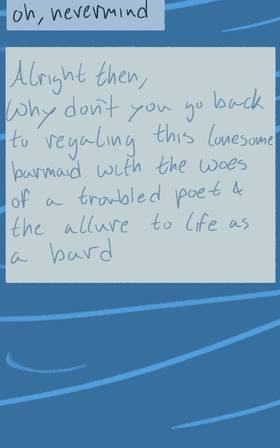 oh, nevermind
Alright then,
Why don't you go back
to regaling this lonesome
barmaid with the woes
of a troubled poet &
the allure to life as
a bard